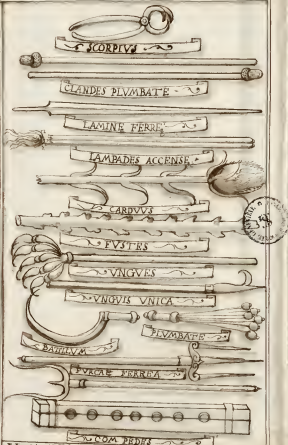 SCORPIVS
GLANDES PLVMBATE
LAMINE FERRE
LAMPADES ACCENSE
CARDVVS
FVSTES
VNGVES
VNGVIS VNICA
PLVMBATE
BACILLVM
FVRCAE FERREA
COMPEDES